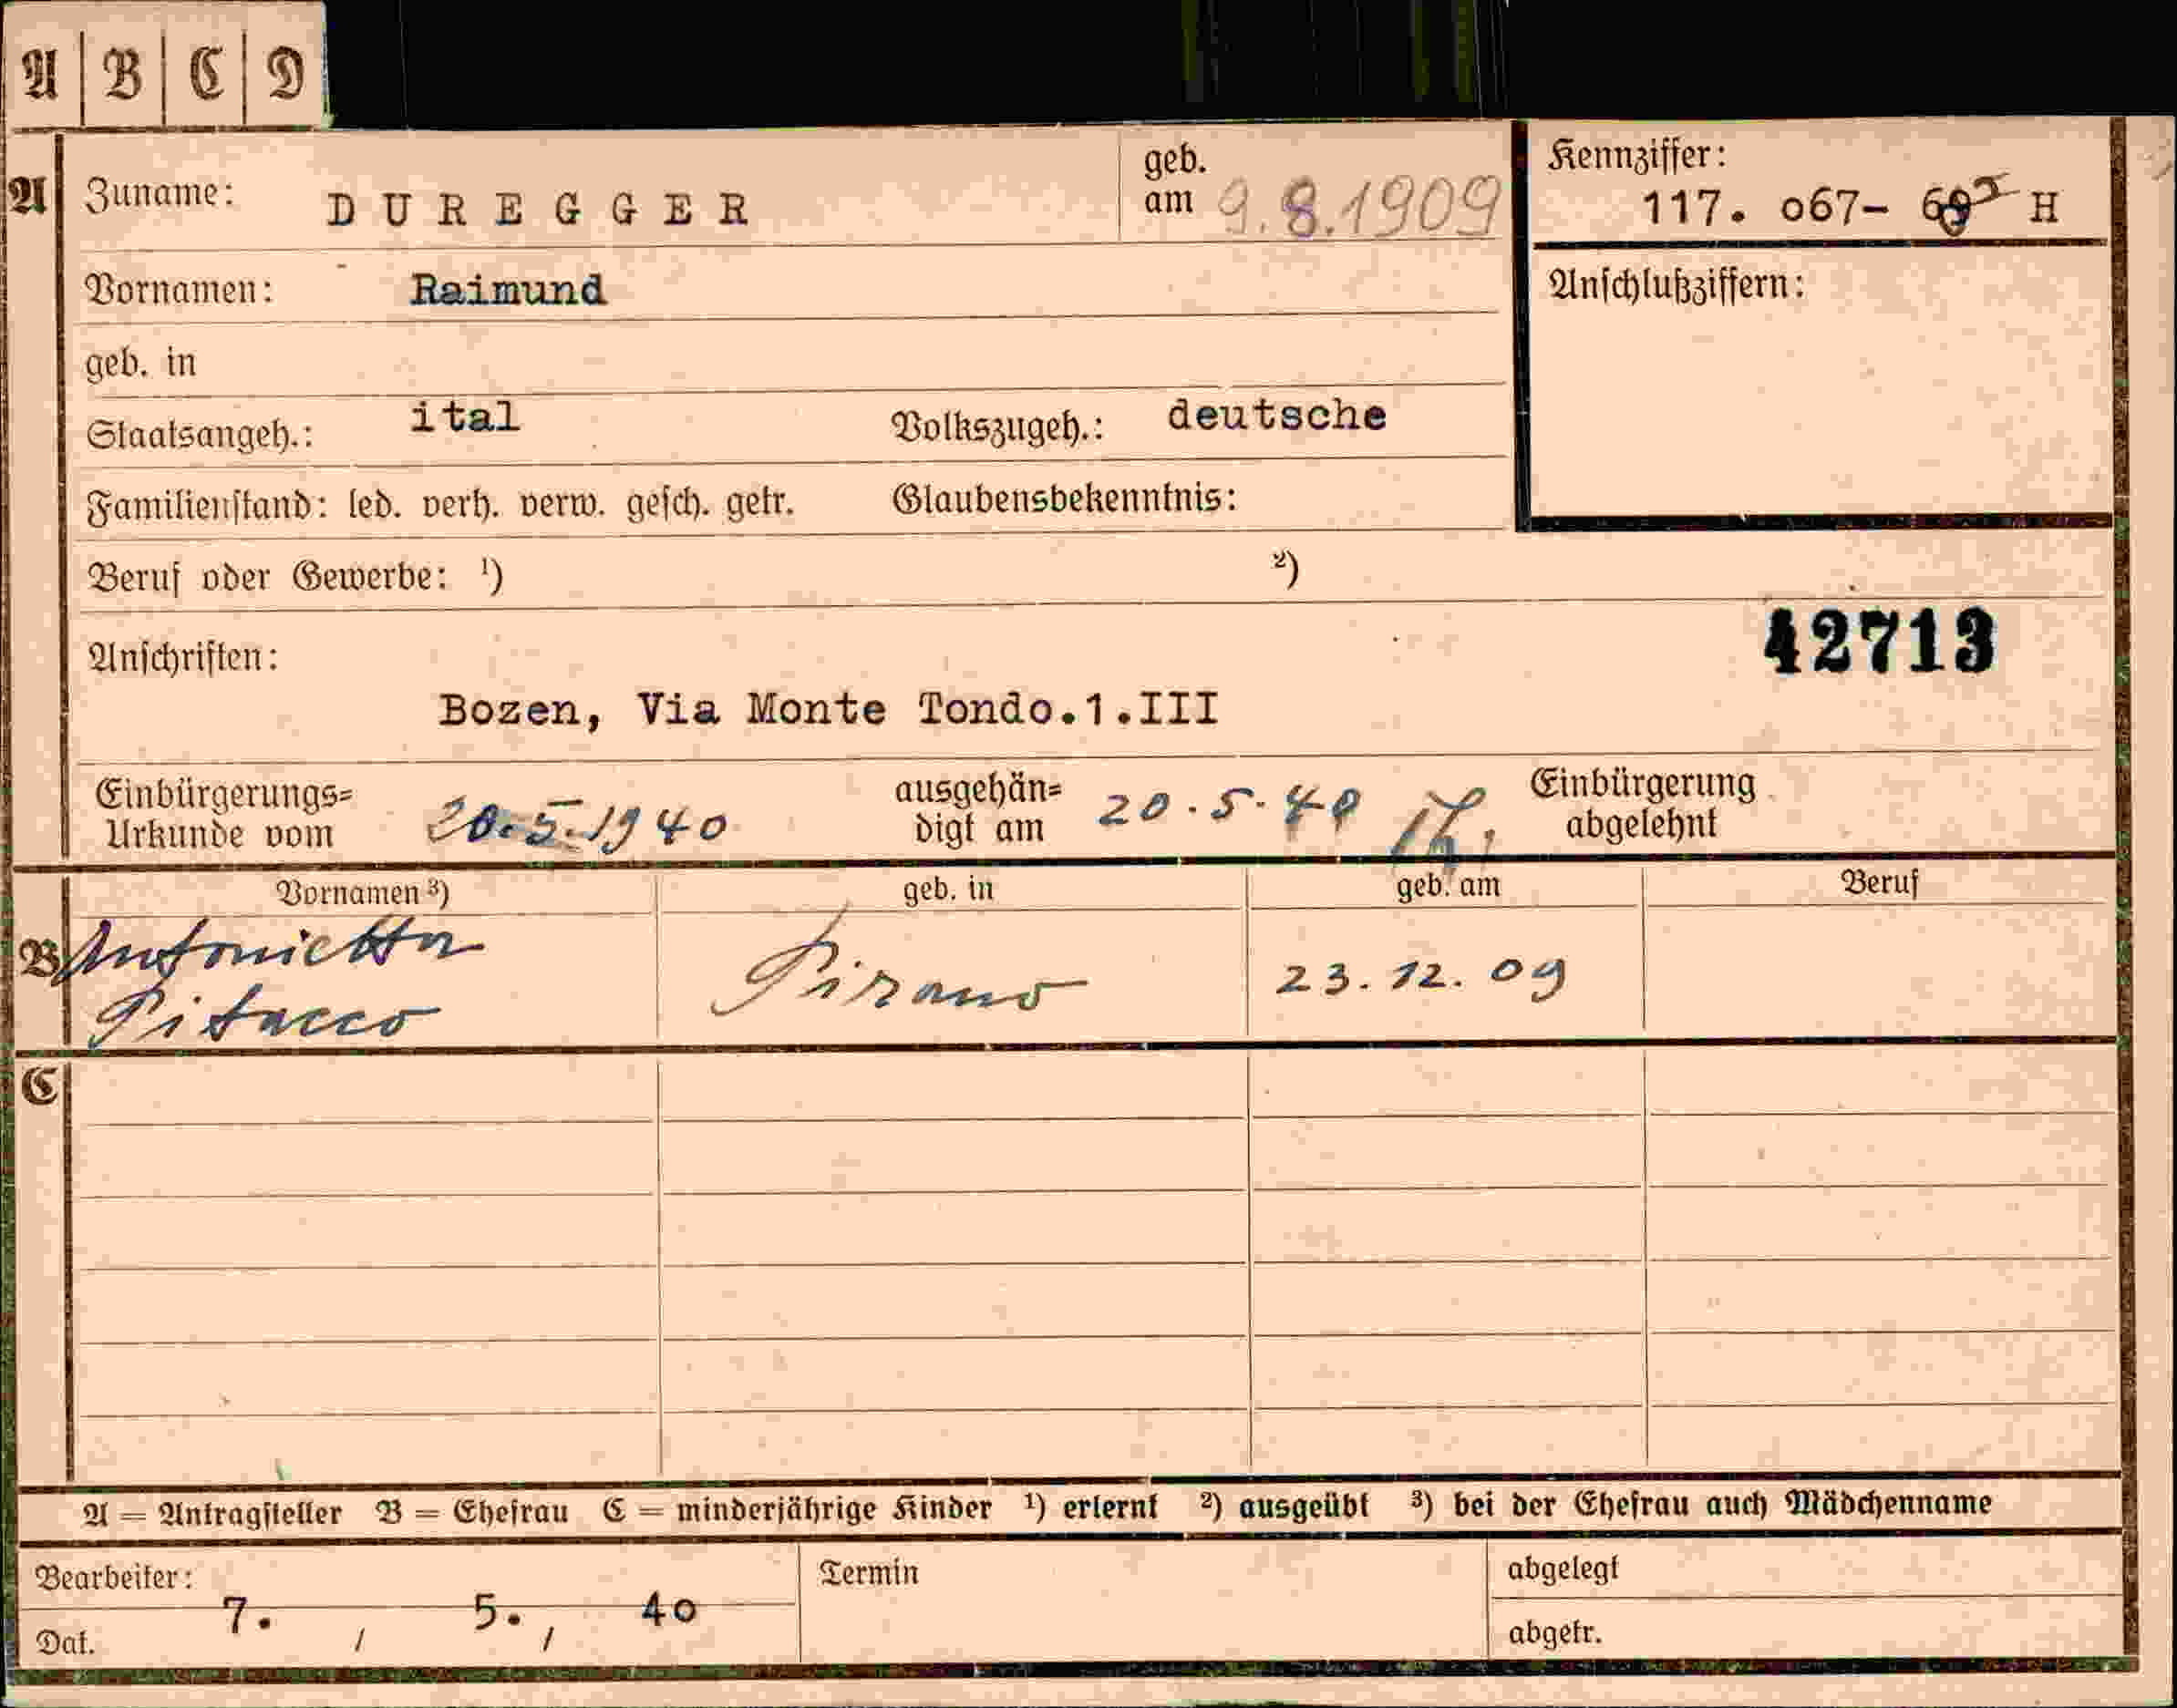 A B C D
A Zuname: DUREGGER geb. am 9.8.1909 Kennziffer: 117. o67- H
Vornamen: Raimund Anschlußziffern:
geb. in
Staatsangeh.: ital Volkszugeh.: deutsche
Familienstand: led. verh. verw. gesch. getr. Glaubensbekenntnis:
Beruf oder Gewerbe: ¹) ²)
42713
Anschriften:
Bozen, Via Monte Tondo.1.III
Einbürgerungs= ausgehän= Einbürgerung
Urkunde vom 20.5.1940 digt am 20.5.40 abgelehnt
Vornamen ³) geb. in geb. am Beruf
B Antonietta Pirano 23.12.09
Pitacco
C
A = Antragsteller B = Ehefrau C = minderjährige Kinder ¹) erlernt ²) ausgeübt ³) bei der Ehefrau auch Mädchenname
Bearbeiter: Termin abgelegt
Dat. 7. / 5. / 40 abgetr.